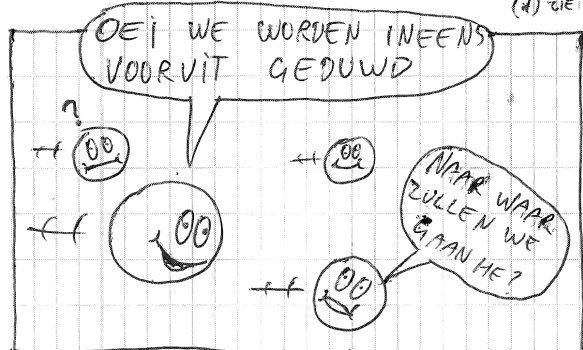 (*) ZIE
OEI WE WORDEN INEENS
VOORUIT GEDUWD
?
NAAR WAAR
ZULLEN WE
GAAN HE?